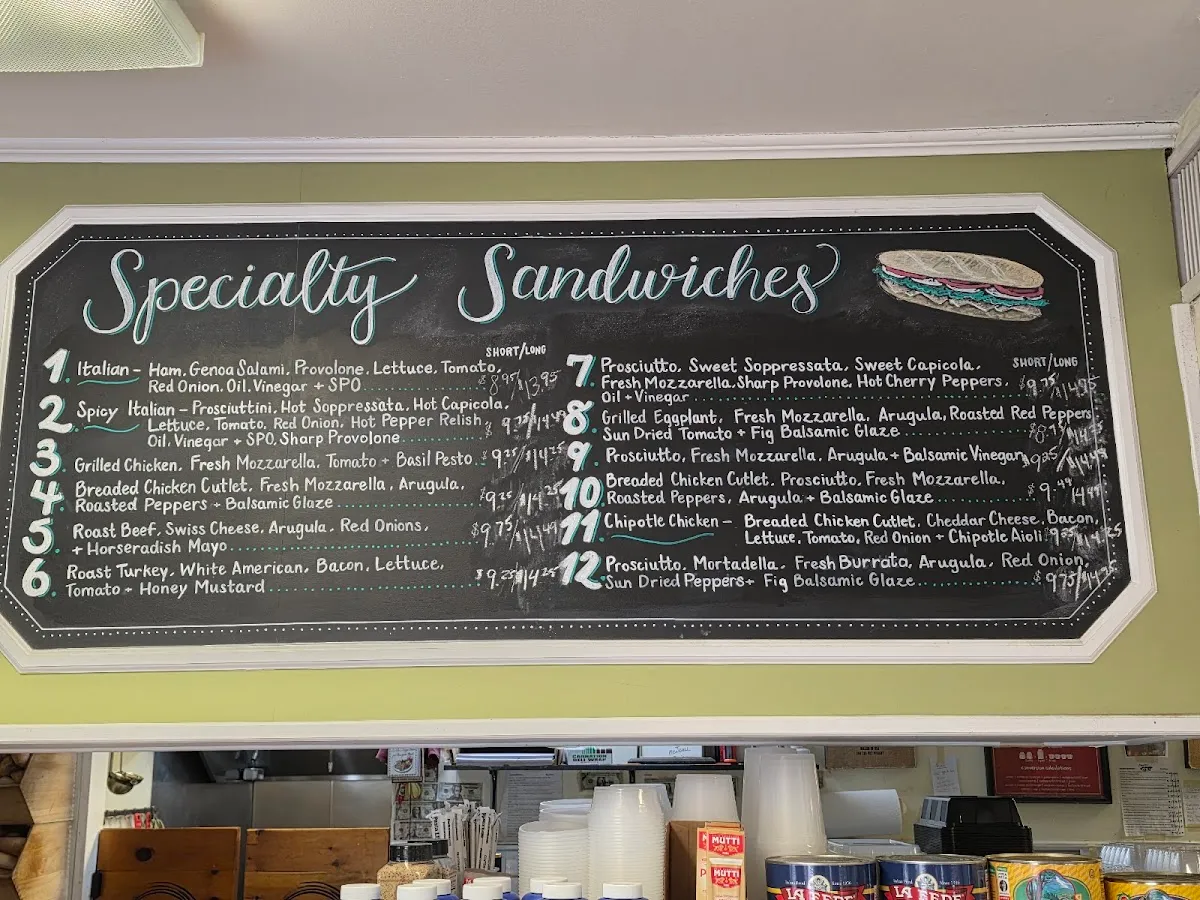 Specialty Sandwiches
SHORT/LONG
1. Italian – Ham, Genoa Salami, Provolone, Lettuce, Tomato,
Red Onion, Oil, Vinegar + SPO $8.95/13.95
2. Spicy Italian – Prosciuttini, Hot Soppressata, Hot Capicola,
Lettuce, Tomato, Red Onion, Hot Pepper Relish
Oil, Vinegar + SPO, Sharp Provolone
3. Grilled Chicken, Fresh Mozzarella, Tomato + Basil Pesto
4. Breaded Chicken Cutlet, Fresh Mozzarella, Arugula,
Roasted Peppers + Balsamic Glaze $9.25/14.25
5. Roast Beef, Swiss Cheese, Arugula, Red Onions,
+ Horseradish Mayo $9.75/14.49
6. Roast Turkey, White American, Bacon, Lettuce,
Tomato + Honey Mustard $9.25/14.25
SHORT/LONG
7. Prosciutto, Sweet Soppressata, Sweet Capicola,
Fresh Mozzarella, Sharp Provolone, Hot Cherry Peppers,
Oil + Vinegar $9.75/14.95
8. Grilled Eggplant, Fresh Mozzarella, Arugula, Roasted Red Peppers
Sun Dried Tomato + Fig Balsamic Glaze
9. Prosciutto, Fresh Mozzarella, Arugula + Balsamic Vinegar
10. Breaded Chicken Cutlet, Prosciutto, Fresh Mozzarella,
Roasted Peppers, Arugula + Balsamic Glaze
11. Chipotle Chicken – Breaded Chicken Cutlet, Cheddar Cheese, Bacon,
Lettuce, Tomato, Red Onion + Chipotle Aioli
12. Prosciutto, Mortadella, Fresh Burrata, Arugula, Red Onion,
Sun Dried Peppers + Fig Balsamic Glaze
MUTTI
MUTTI
LA BEDE